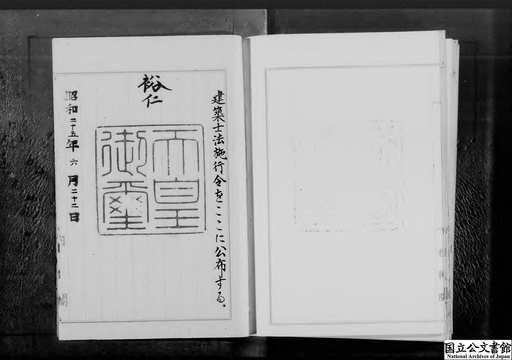 建築士法施行令をここに公布する。
裕仁
天皇
御璽
昭和二十五年六月二十二日
国立公文書館
National Archives of Japan